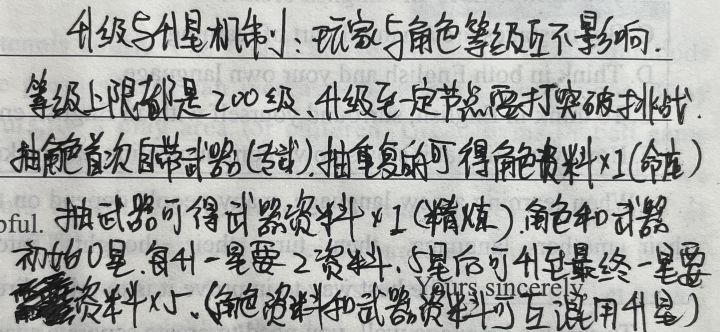 升级与升星机制：玩家与角色等级互不影响.
等级上限都是200级、升级至一定节点要打突破挑战.
抽角色首次自带武器(专武).抽重复的可得角色资料×1(命座)
oful. 抽武器可得武器资料×1(精炼).角色和武器
初始0星.每升一星要2资料.5星后可升至最终一星要
资料×5.(角色资料和武器资料可互混用升星)
Yours sincerely
D. Think in both English and your own language